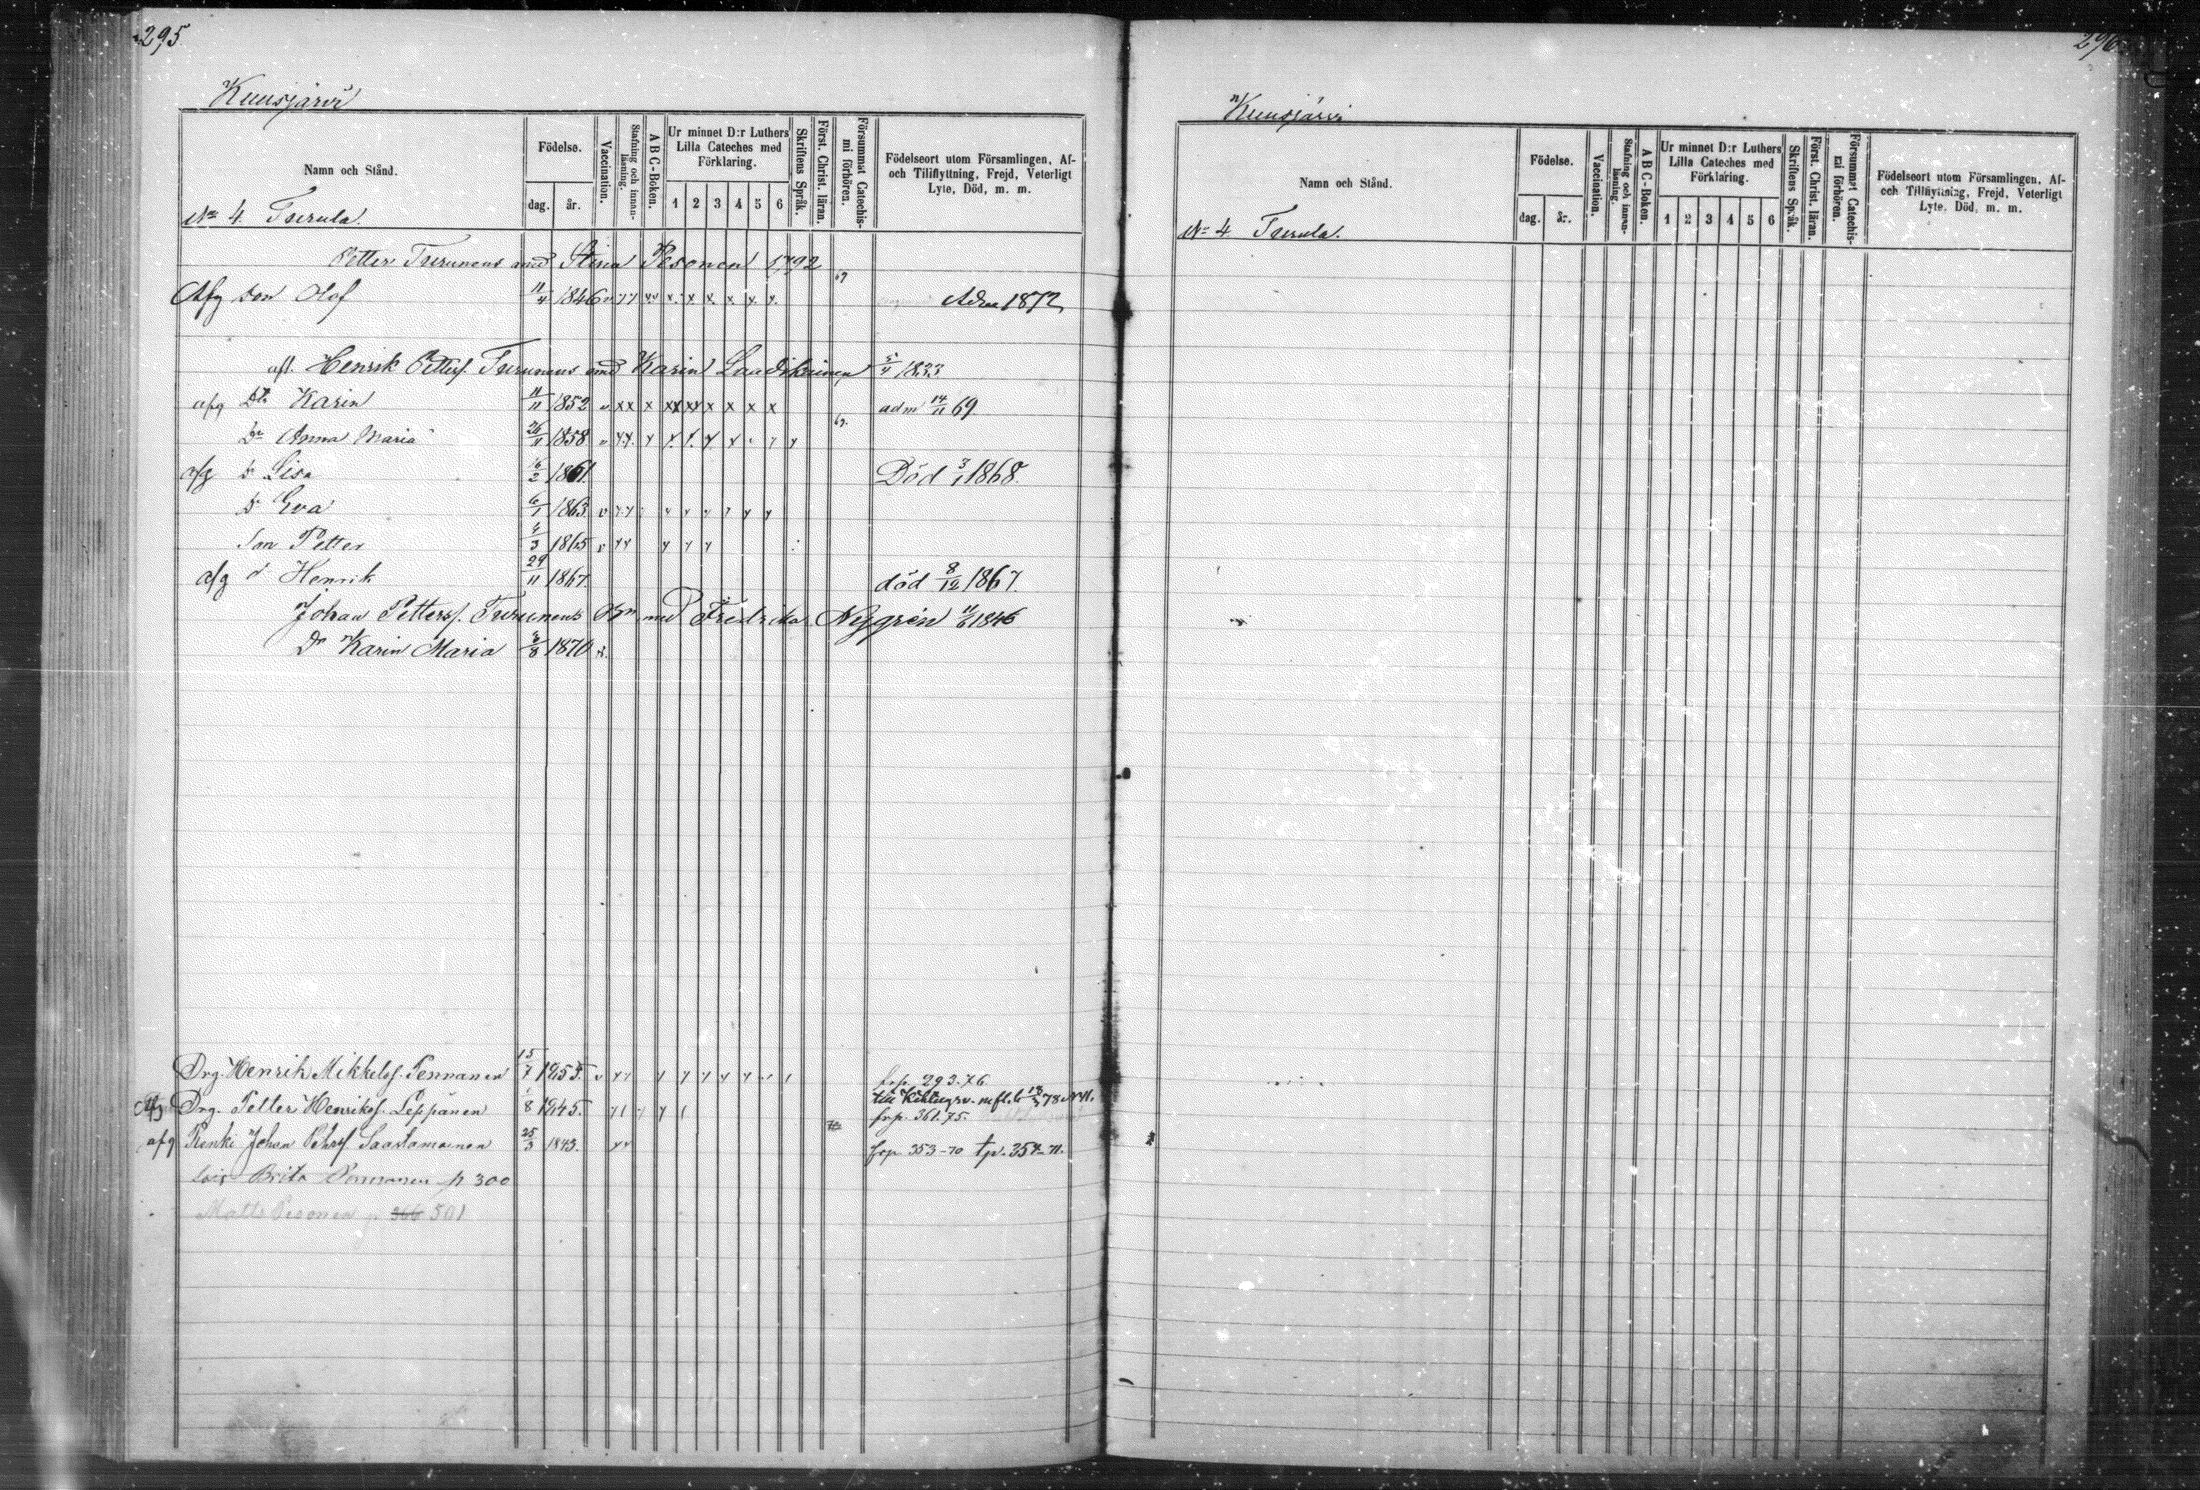 295
Kuusjärvi
Namn och Stånd.
Födelse.
dag. år.
Vaccination.
Stafning och innan-läsning.
ABC-Boken.
Ur minnet D:r Luthers Lilla Cateches med Förklaring.
1 2 3 4 5 6
Skriftens Språk.
Först. Christ. läran.
Försummat Catechis-mi förhören.
Födelseort utom Församlingen, Af- och Tillflyttning, Frejd, Veterligt Lyte, Död, m. m.
No 4. Turula.
Petter Turunens Stina Pesonen 1792
Afg Son Olaf 11/4 1846 1872
Henrik Petters. Turunens Karin 5/4 1833
afg Dr Karin 11/11 1852 adm 14/11 69
Dr Anna Maria 26/11 1858
afg Dr Lisa 16/2 1861. Död 3/1 1868.
Dr Eva 6/1 1863
Son Petter 4/3 1865
afg d Henrik 29/11 1867. död 8/12 1867.
Johan Petterss. Turunens med Fredrika Nygrén 11/6 1846
Dr Karin Maria 2/8 1870
Drg. Henrik Mikkelss. Pennanen 15/7 1255. frp. 293.76
Afg Drg. Petter Henrikss. Leppänen 1/8 1245. frp. 361.75.
afg Renki Johan Saastamoinen 25/3 1843. frp 353-70 tp. 354-71.
Brita Pennanen p 300
Matts Pesonen p. 366 501
296
Kuusjärvi
Namn och Stånd.
Födelse.
dag. år.
Vaccination.
Stafning och innan-läsning.
ABC-Boken.
Ur minnet D:r Luthers Lilla Cateches med Förklaring.
1 2 3 4 5 6
Skriftens Språk.
Först. Christ. läran.
Försummat Catechis-mi förhören.
Födelseort utom Församlingen, Af- och Tillflyttning, Frejd, Veterligt Lyte, Död, m. m.
No 4 Turula.